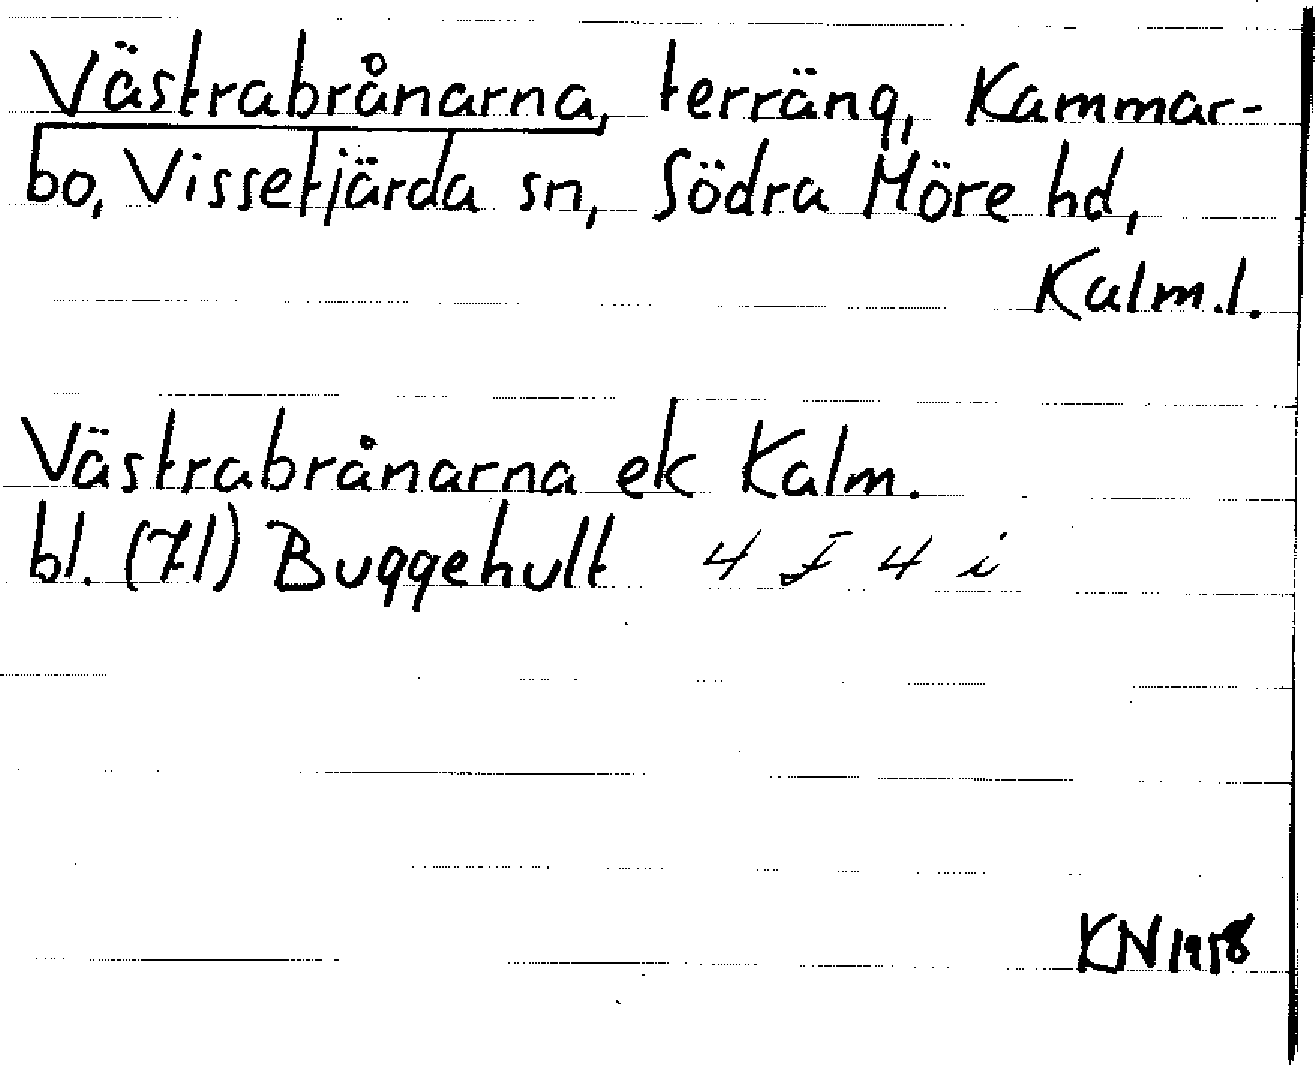 Västrabrånarna, terräng, Kammar-
bo, Vissefjärda sn, Södra Möre hd,
Kalm.l.
Västrabrånarna ek Kalm.
bl. (71) Buggehult 4 F 4 i
KN 1958